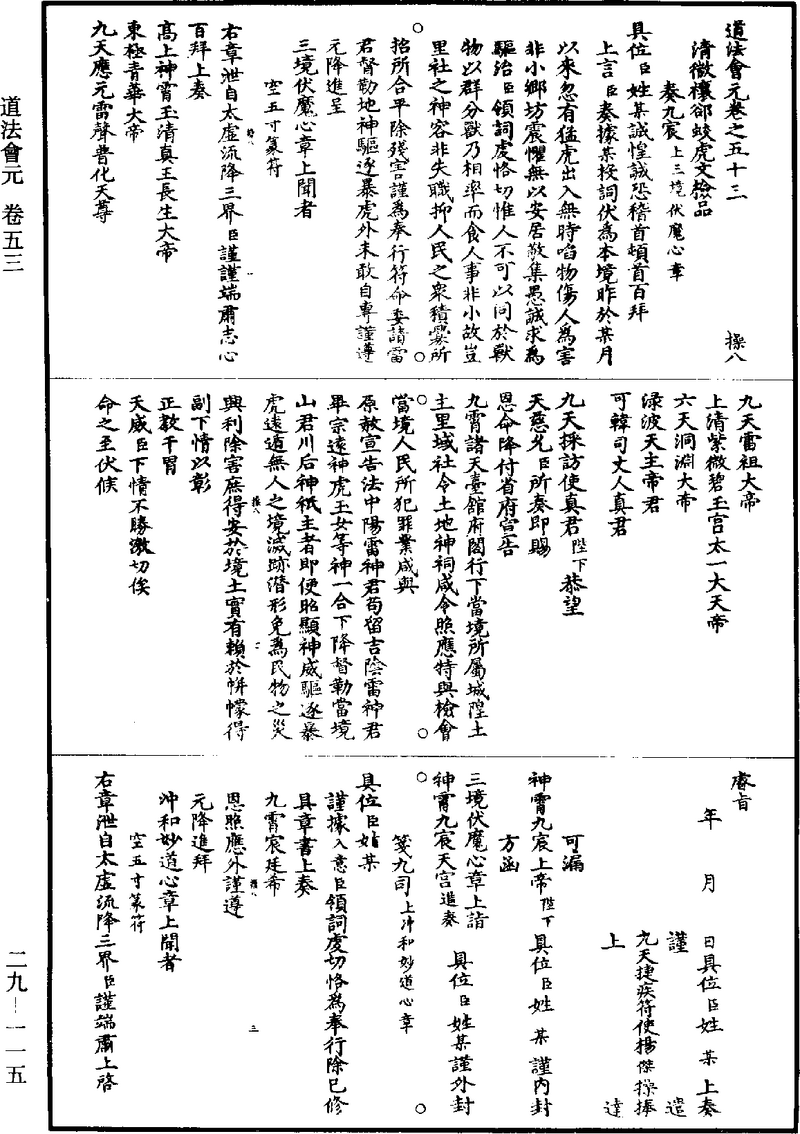 道法會元卷之五十三　操八
清微禳卻蛟虎文檢品
奏九宸上三境伏魔心章
具位臣姓某誠惶誠恐稽首頓首百拜
上言臣奏據某投詞伏為本境昨於某月
以來忽有猛虎出入無時啗物傷人為害
非小鄉坊震懼無以安居敬集愚誠求為
驅治臣領詞虔恪切惟人不可以同於獸
物以群分獸乃相率而食人事非小故豈
里社之神容非失職抑人民之衆積釁所
招所合平除殘害謹為奉行符命委請雷
君督勒地神驅逐暴虎外未敢自專謹遵
元降進呈
三境伏魔心章上聞者
空五寸篆符
右章泄自太虛流降三界臣謹謹端肅志心
百拜上奏
高上神霄玉清真王長生大帝
東極青華大帝
九天應元雷聲普化天尊
九天雷祖大帝
上清紫微碧玉宮太一大天帝
六天洞淵大帝
渌波天主帝君
可韓司丈人真君
九天採訪使真君陛下恭望
天慈允臣所奏即賜
恩命降付省府宣告
九霄諸天臺館府閣行下當境所屬城隍土
主里域社令土地神祠咸令照應特與檢會
當境人民所犯罪業咸與
原赦宣告法中陽雷神君苟留吉陰雷神君
畢宗遠神虎玉女等神一合下降督勒當境
山君川后神祇主者即便昭顯神威驅逐暴
虎遠遁無人之境滅跡潛形免為民物之災
興利除害庶得安於境土實有賴於帡幪得
副下情以彰
正教干冒
天威臣下情不勝激切俟
命之至伏候
睿旨
年　月　日具位臣姓　某　上奏
謹　遣
九天捷疾符使楊傑操捧
上　達
可漏
神霄九宸上帝陛下　具位臣姓　某　謹內封
方函
三境伏魔心章上詣
神霄九宸天宮進奏　具位臣姓某謹外封
箋九司上冲和妙道心章
具位臣姓某
謹據入意臣領詞虔切恪為奉行除已修
具章書上奏
九霄宸廷希
恩照應外謹遵
元降進拜
冲和妙道心章上聞者
空五寸篆符
右章泄自太虛流降三界臣謹端肅上啓
道法會元　卷五三
二九—一一五